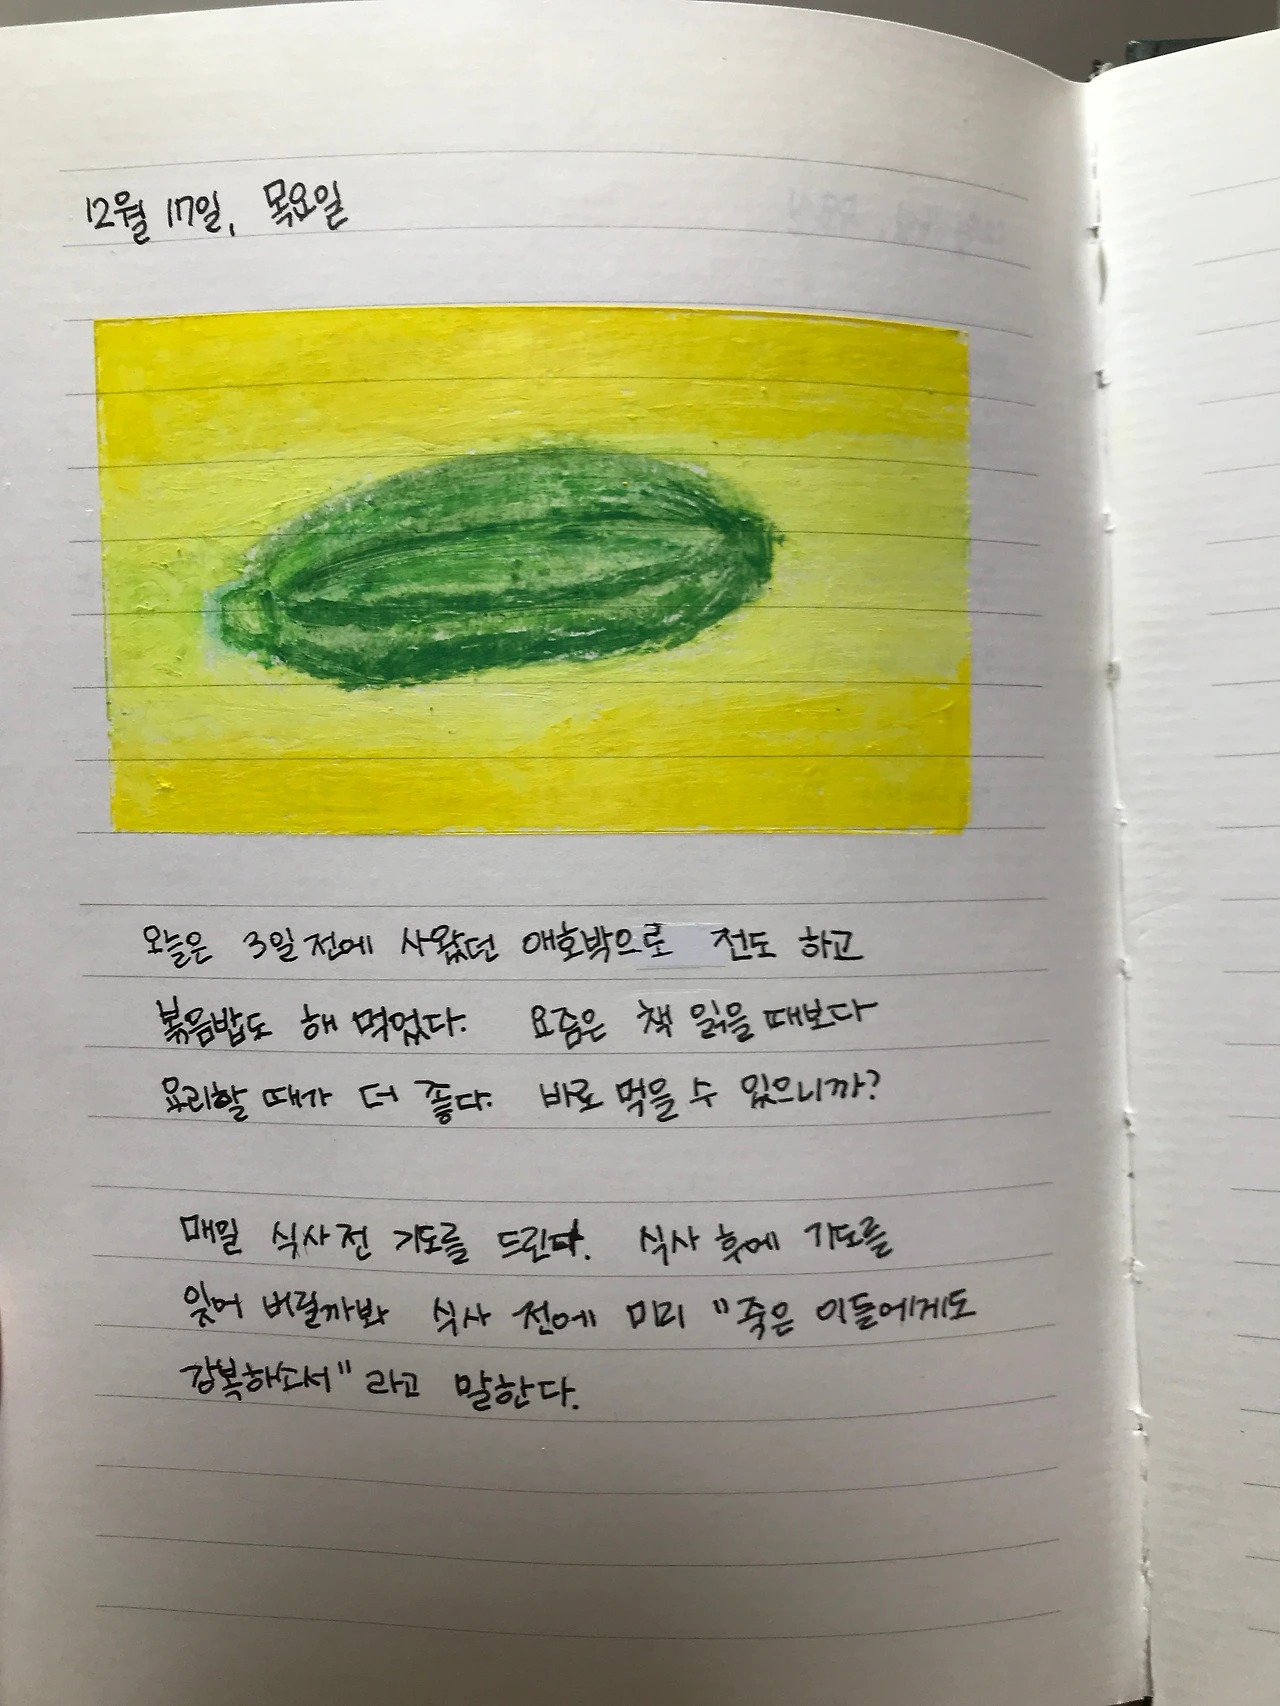 12월 17일, 목요일
오늘은 3일 전에 사왔던 애호박으로 전도 하고
볶음밥도 해 먹었다. 요즘은 책 읽을 때보다
요리할 때가 더 좋다. 바로 먹을 수 있으니까?
매일 식사 전 기도를 드린다. 식사 후에 기도를
잊어 버릴까봐 식사 전에 미리 "죽은 이들에게도
강복하소서" 라고 말한다.